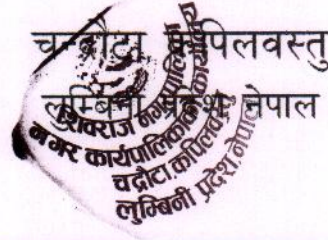 चन्द्रौटा कपिलवस्तु
लुम्बिनी प्रदेश नेपाल
शिवराज नगरपालिका
नगर कार्यपालिकाको कार्यालय
चद्रौटा,कपिलवस्तु
लुम्बिनी प्रदेश,नेपाल